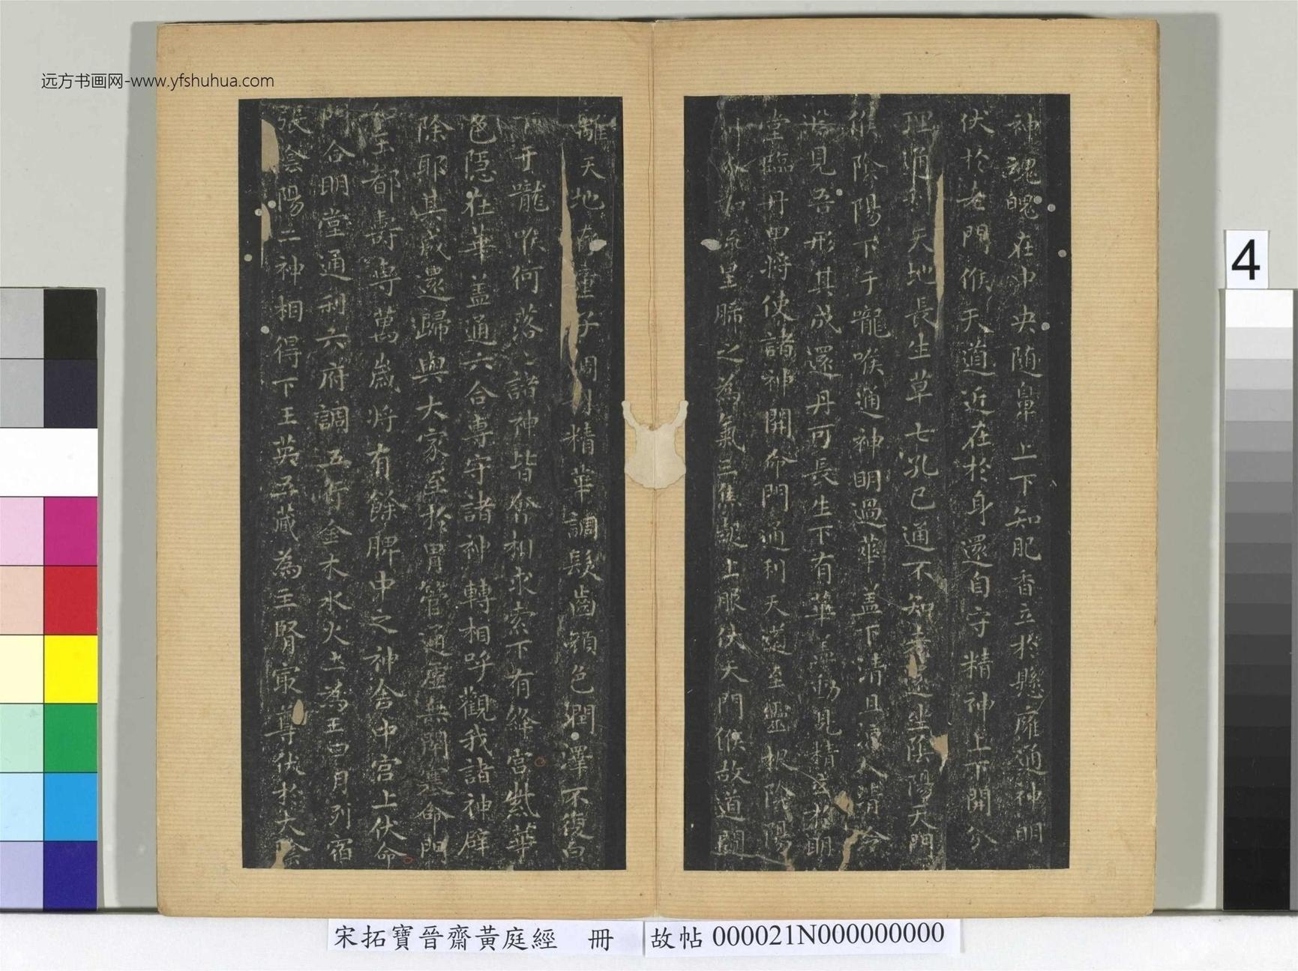 远方书画网-www.yfshuhua.com
神魂魄在中央随鼻上下知肥香立於懸廱通神明
伏於老門候天道近在於身還自守精神上下開分
理通利天地長生草七孔已通不知老還坐陰陽天門
候陰陽下于嚨喉通神明過華蓋下清且涼入清冷
淵見吾形其成還丹可長生下有華蓋動見精立於明
堂臨丹田將使諸神開命門通利天道至靈根陰陽
列布如流星肺之為氣三焦起上服伏天門候故道闚
離天地存童子調利精華調髮齒顏色潤澤不復白
下于嚨喉何落落諸神皆會相求索下有絳宮紫華
色隱在華蓋通六合專守諸神轉相呼觀我諸神辟
除耶其成還歸與大家至於胃管通虛無閉塞命門
如玉都壽專萬歲將有餘脾中之神舍中宮上伏命
門合明堂通利六府調五行金木水火土為王日月列宿
張陰陽二神相得下王英五藏為主腎㝡尊伏於大陰
4
宋拓寶晉齋黃庭經 冊
故帖 000021N000000000